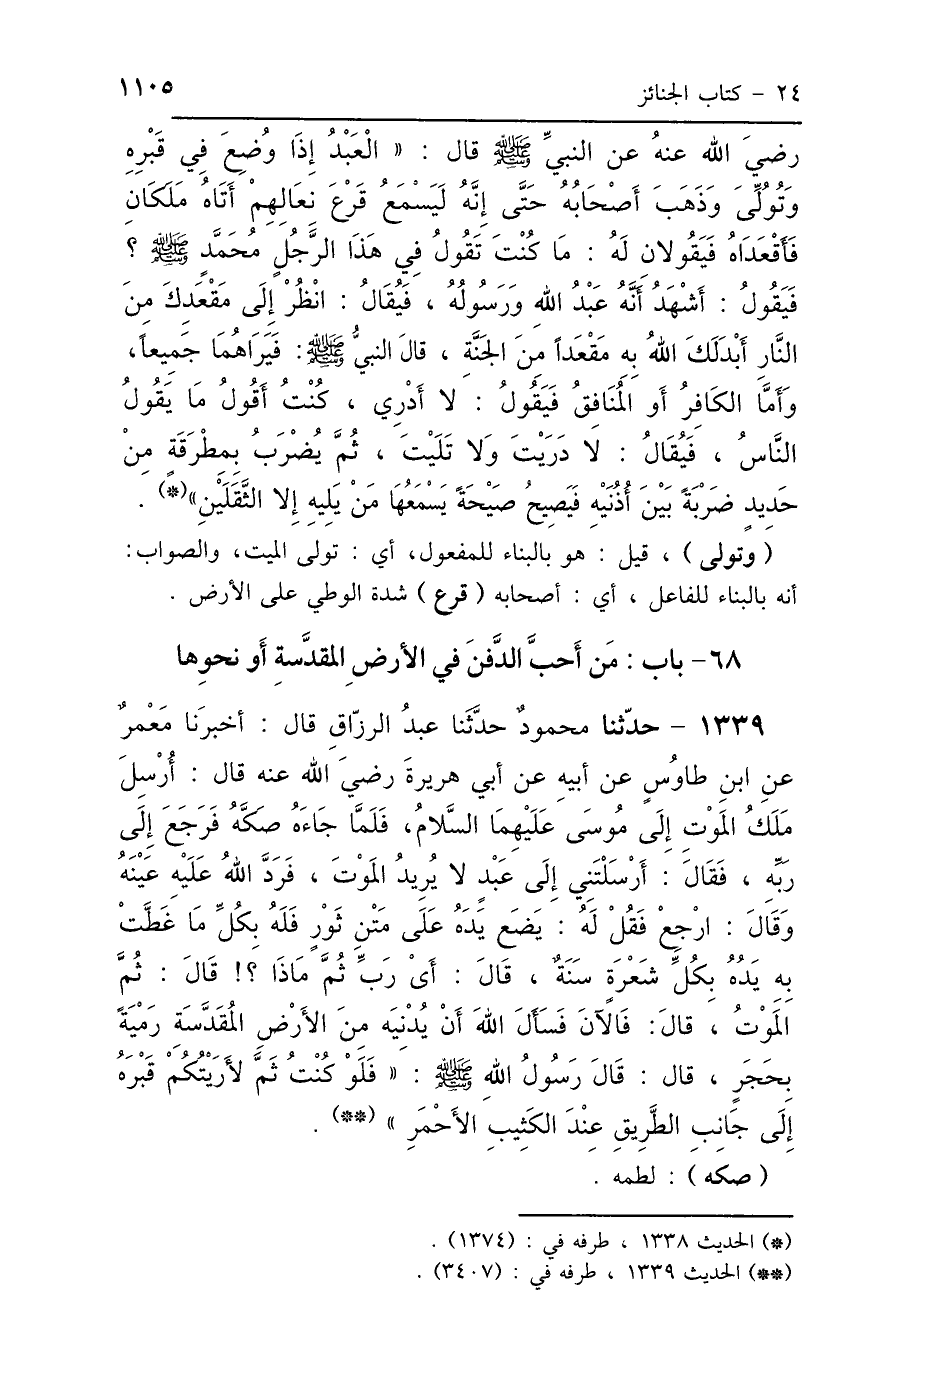 ٢٤ - كتاب الجنائز ١١٠٥
رضيَ الله عنهُ عن النبيِّ ﷺ قال : « الْعَبْدُ إِذَا وُضِعَ فِي قَبْرِهِ
وَتُوُلِّيَ وَذَهَبَ أَصْحَابُهُ حَتَّى إِنَّهُ لَيَسْمَعُ قَرْعَ نِعَالِهِمْ أَتَاهُ مَلَكَانِ
فَأَقْعَدَاهُ فَيَقُولانِ لَهُ : مَا كُنْتَ تَقُولُ فِي هَذَا الرَّجُلِ مُحَمَّدٍ ﷺ ؟
فَيَقُولُ : أَشْهَدُ أَنَّهُ عَبْدُ اللهِ وَرَسُولُهُ ، فَيُقَالُ : انْظُرْ إِلَى مَقْعَدِكَ مِنَ
النَّارِ أَبْدَلَكَ اللهُ بِهِ مَقْعَداً مِنَ الجَنَّةِ ، قالَ النبيُّ ﷺ : فَيَرَاهُمَا جَمِيعاً،
وَأَمَّا الكَافِرُ أَوِ المُنَافِقُ فَيَقُولُ : لا أَدْرِي ، كُنْتُ أَقُولُ مَا يَقُولُ
النَّاسُ ، فَيُقَالُ : لا دَرَيْتَ وَلا تَلَيْتَ ، ثُمَّ يُضْرَبُ بِمِطْرَقَةٍ مِنْ
حَدِيدٍ ضَرْبَةً بَيْنَ أُذُنَيْهِ فَيَصِيحُ صَيْحَةً يَسْمَعُهَا مَنْ يَلِيهِ إِلا الثَّقَلَيْنِ»(*) .
( وتولى ) ، قيل : هو بالبناء للمفعول، أي : تولى الميت، والصواب:
أنه بالبناء للفاعل ، أي : أصحابه ( قرع ) شدة الوطي على الأرض .
٦٨- باب : مَن أَحبَّ الدَّفنَ في الأرضِ المقدَّسةِ أَو نحوِها
١٣٣٩ - حدّثنا محمودٌ حدَّثَنا عبدُ الرزّاقِ قال : أخبرَنا مَعْمرٌ
عنِ ابنِ طاوُسٍ عن أبيهِ عن أبي هريرةَ رضيَ الله عنه قال : أُرْسِلَ
مَلَكُ المَوْتِ إِلَى مُوسَى عَلَيْهِمَا السَّلامُ، فَلَمَّا جَاءَهُ صَكَّهُ فَرَجَعَ إِلَى
رَبِّهِ ، فَقَالَ : أَرْسَلْتَنِي إِلَى عَبْدٍ لا يُرِيدُ المَوْتَ ، فَرَدَّ اللهُ عَلَيْهِ عَيْنَهُ
وَقَالَ : ارْجِعْ فَقُلْ لَهُ : يَضَع يَدَهُ عَلَى مَتْنِ ثَوْرٍ فَلَهُ بِكُلِّ مَا غَطَّتْ
بِهِ يَدُهُ بِكُلِّ شَعْرَةٍ سَنَةٌ ، قَالَ : أَيْ رَبِّ ثُمَّ مَاذَا ؟! قَالَ : ثُمَّ
المَوْتُ ، قالَ: فَالآنَ فَسَأَلَ اللهَ أَنْ يُدْنِيَهِ مِنَ الأَرْضِ المُقَدَّسَةِ رَمْيَةً
بِحَجَرٍ ، قال : قَالَ رَسُولُ اللهِ ﷺ : « فَلَوْ كُنْتُ ثَمَّ لأَرَيْتُكُمْ قَبْرَهُ
إِلَى جَانِبِ الطَّرِيقِ عِنْدَ الكَثِيبِ الأَحْمَرِ » (**) .
( صكه ) : لطمه .
(*) الحديث ١٣٣٨ ، طرفه في : (١٣٧٤) .
(**) الحديث ١٣٣٩ ، طرفه في : (٣٤٠٧) .